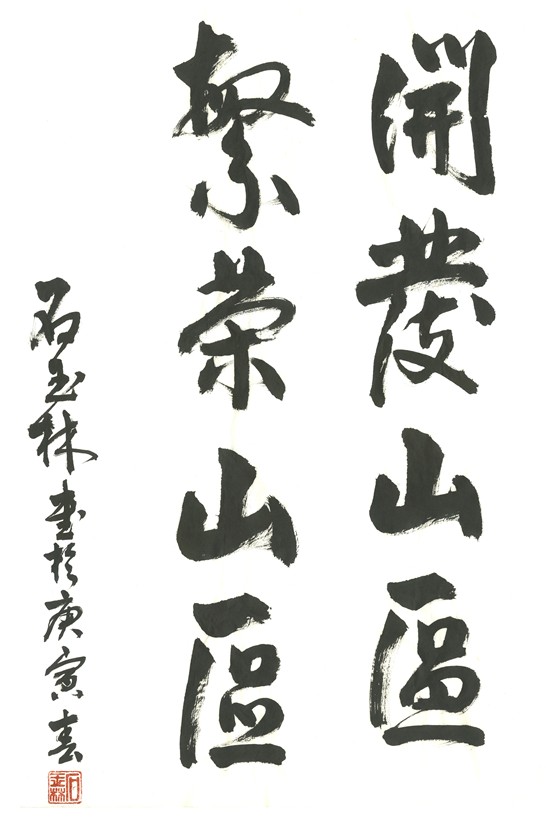 開發山區
繁荣山區
石玉林書於庚寅春
石玉林